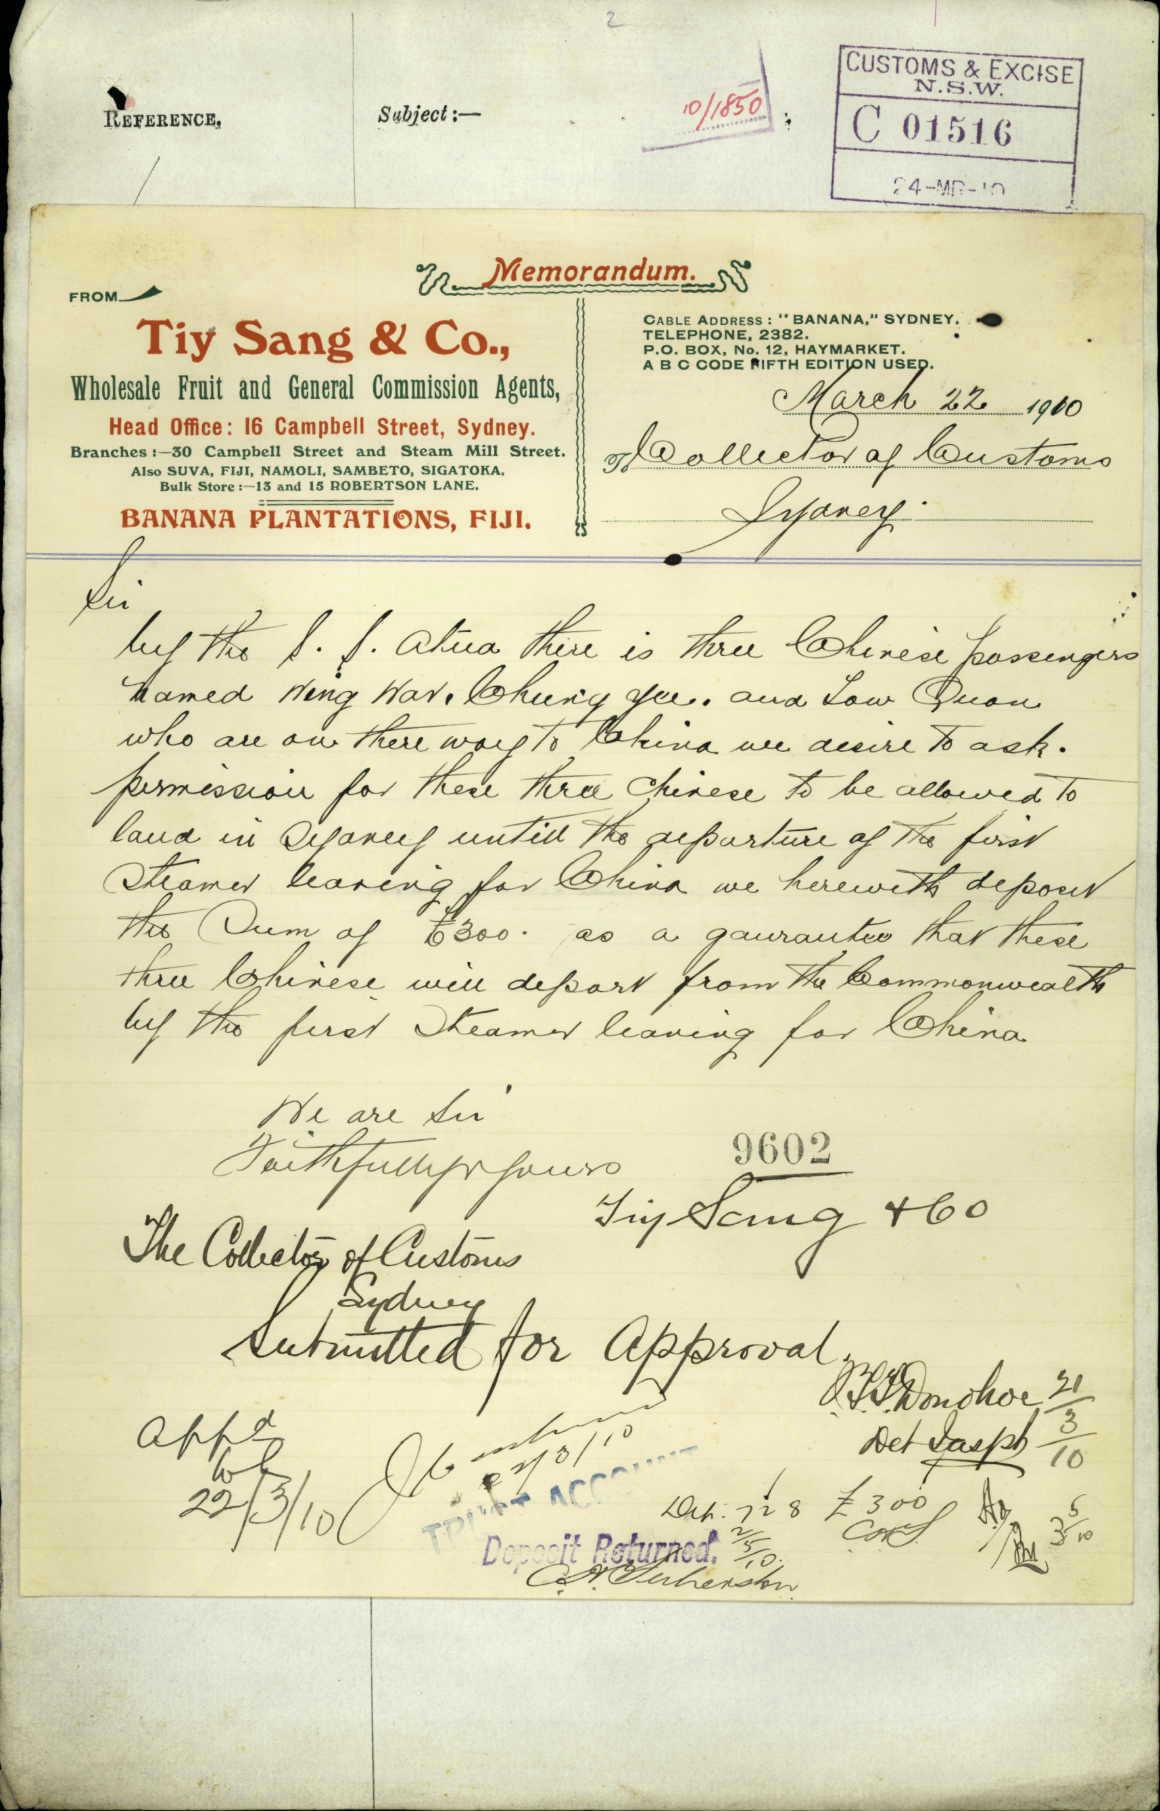 2
REFERENCE.
Subject:—
10/1850
CUSTOMS & EXCISE
N.S.W.
C 01516
24-MR-10
Memorandum.
FROM
Tiy Sang & Co.,
Wholesale Fruit and General Commission Agents,
Head Office: 16 Campbell Street, Sydney.
Branches:—30 Campbell Street and Steam Mill Street.
Also SUVA, FIJI, NAMOLI, SAMBETO, SIGATOKA.
Bulk Store:—13 and 15 ROBERTSON LANE.
BANANA PLANTATIONS, FIJI.
CABLE ADDRESS: "BANANA," SYDNEY.
TELEPHONE, 2382.
P.O. BOX, No. 12, HAYMARKET.
A B C CODE FIFTH EDITION USED.
March 22 1910
To Collector of Customs
Sydney.
Sir
by the S. S. Atua there is three Chinese passengers
named Wing War, Chung Yee. and Low Quan
who are on there way to China we desire to ask.
permission for these three Chinese to be allowed to
land in Sydney untill the departure of the first
Steamer leaving for China we herewith deposit
the Sum of £300. as a gaurantee that these
three Chinese will depart from the Commonwealth
by the first Steamer leaving for China
We are Sir
Faithfully yours
9602
Tiy Sang & Co
The Collector of Customs
Sydney
Submitted for Approval.
Donohoe 21/3/10
Det Insp
Appd
22/3/10
22/3/10
TRUST ACCOUNT
Deposit Returned.
2/5/10.
728 £300
3/5/10